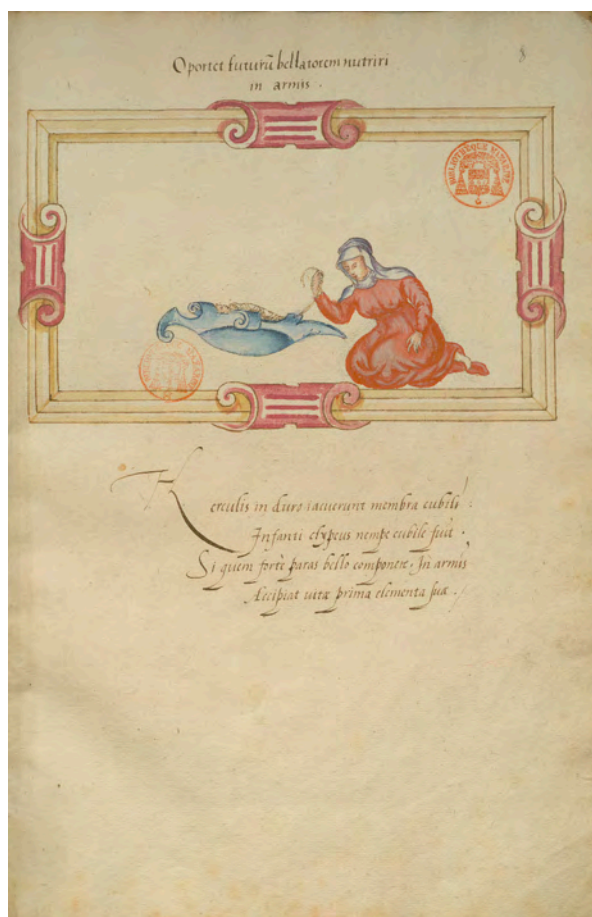 Oportet futurũ bellatorem nutriri
in armis .
8
BIBLIOTHEQUE MAZARINE
Herculis in duro iacuerunt membra cubili :
Infanti clypeus nempe cubile fuit .
Si quem fortè paras bello componere, In armis
Accipiat uitæ prima elementa suæ .